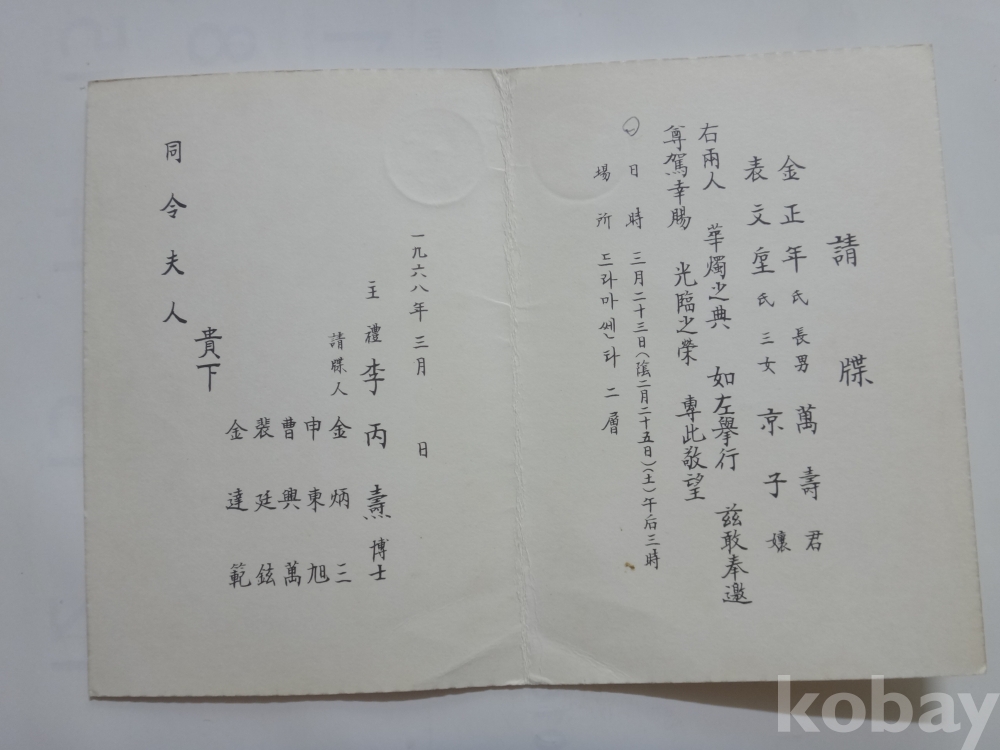 請牒
金正年氏長男 萬壽君
表文奎氏三女 京子孃
右兩人 華燭之典 如左擧行 玆敢奉邀
尊駕幸賜 光臨之榮 專此敬望
日時 三月二十三日(陰二月二十五日)(土)午后三時
場所 드라마쎈타 二層
一九六八年三月 日
主禮 李丙燾 博士
請牒人 金炳三
申東旭
曹興萬
裴廷鉉
金達範
貴下
同令夫人
kobay